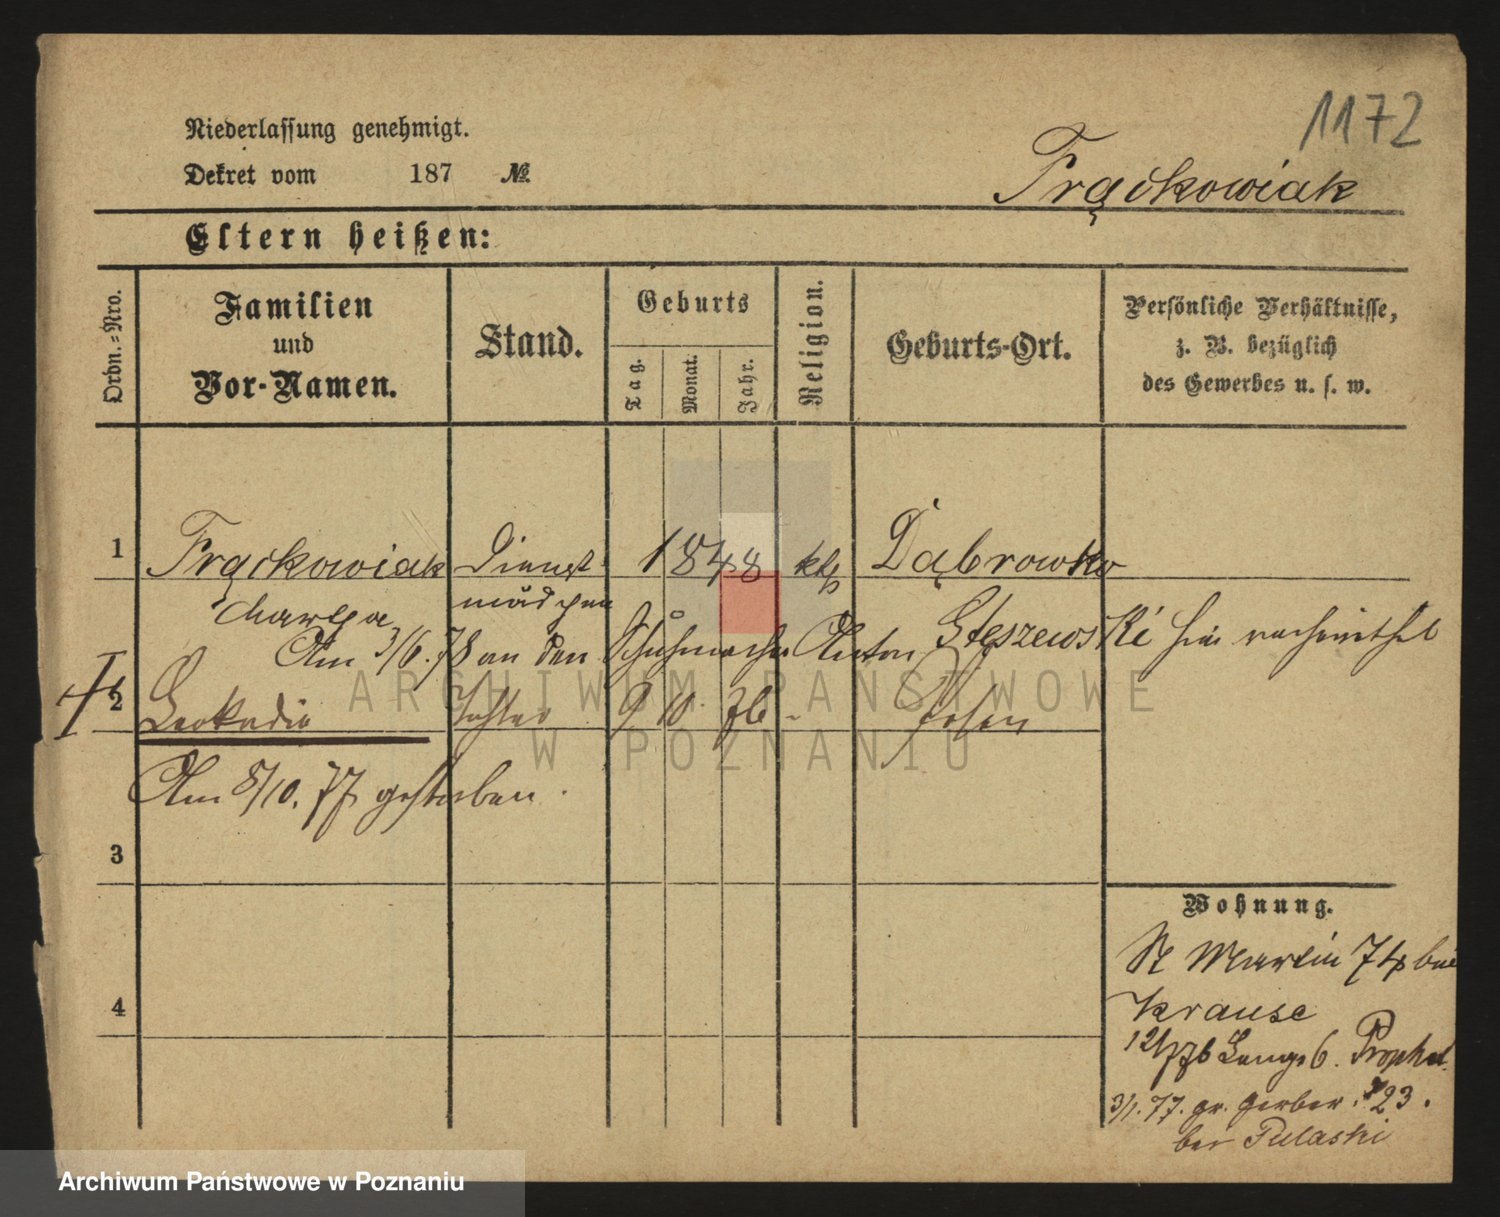 1172
Niederlassung genehmigt.
Dekret vom 187 №
Frąckowiak
Eltern heißen:
Ordn.-Nro.
Familien
und
Vor-Namen.
Stand.
Geburts
Tag.
Monat.
Jahr.
Religion.
Geburts-Ort.
Persönliche Verhältnisse,
z. B. bezüglich
des Gewerbes u. s. w.
1 Frąckowiak Dienst 1848 kth Dąbrowka
mädchen
Am 3/6.78 an den Schuhmacher Anton Stęszewski hier verheirathet
2 Leokadia Tochter 9 10 76 - Posen
Am 8/10. 77 gestorben.
3
4
Wohnung.
St Martin 74 bei
Krause
12/776 Lange 6. Prophet
3/1.77. gr. Gerber. 23.
bei Pulaski
ARCHIWUM PAŃSTWOWE
W POZNANIU
Archiwum Państwowe w Poznaniu